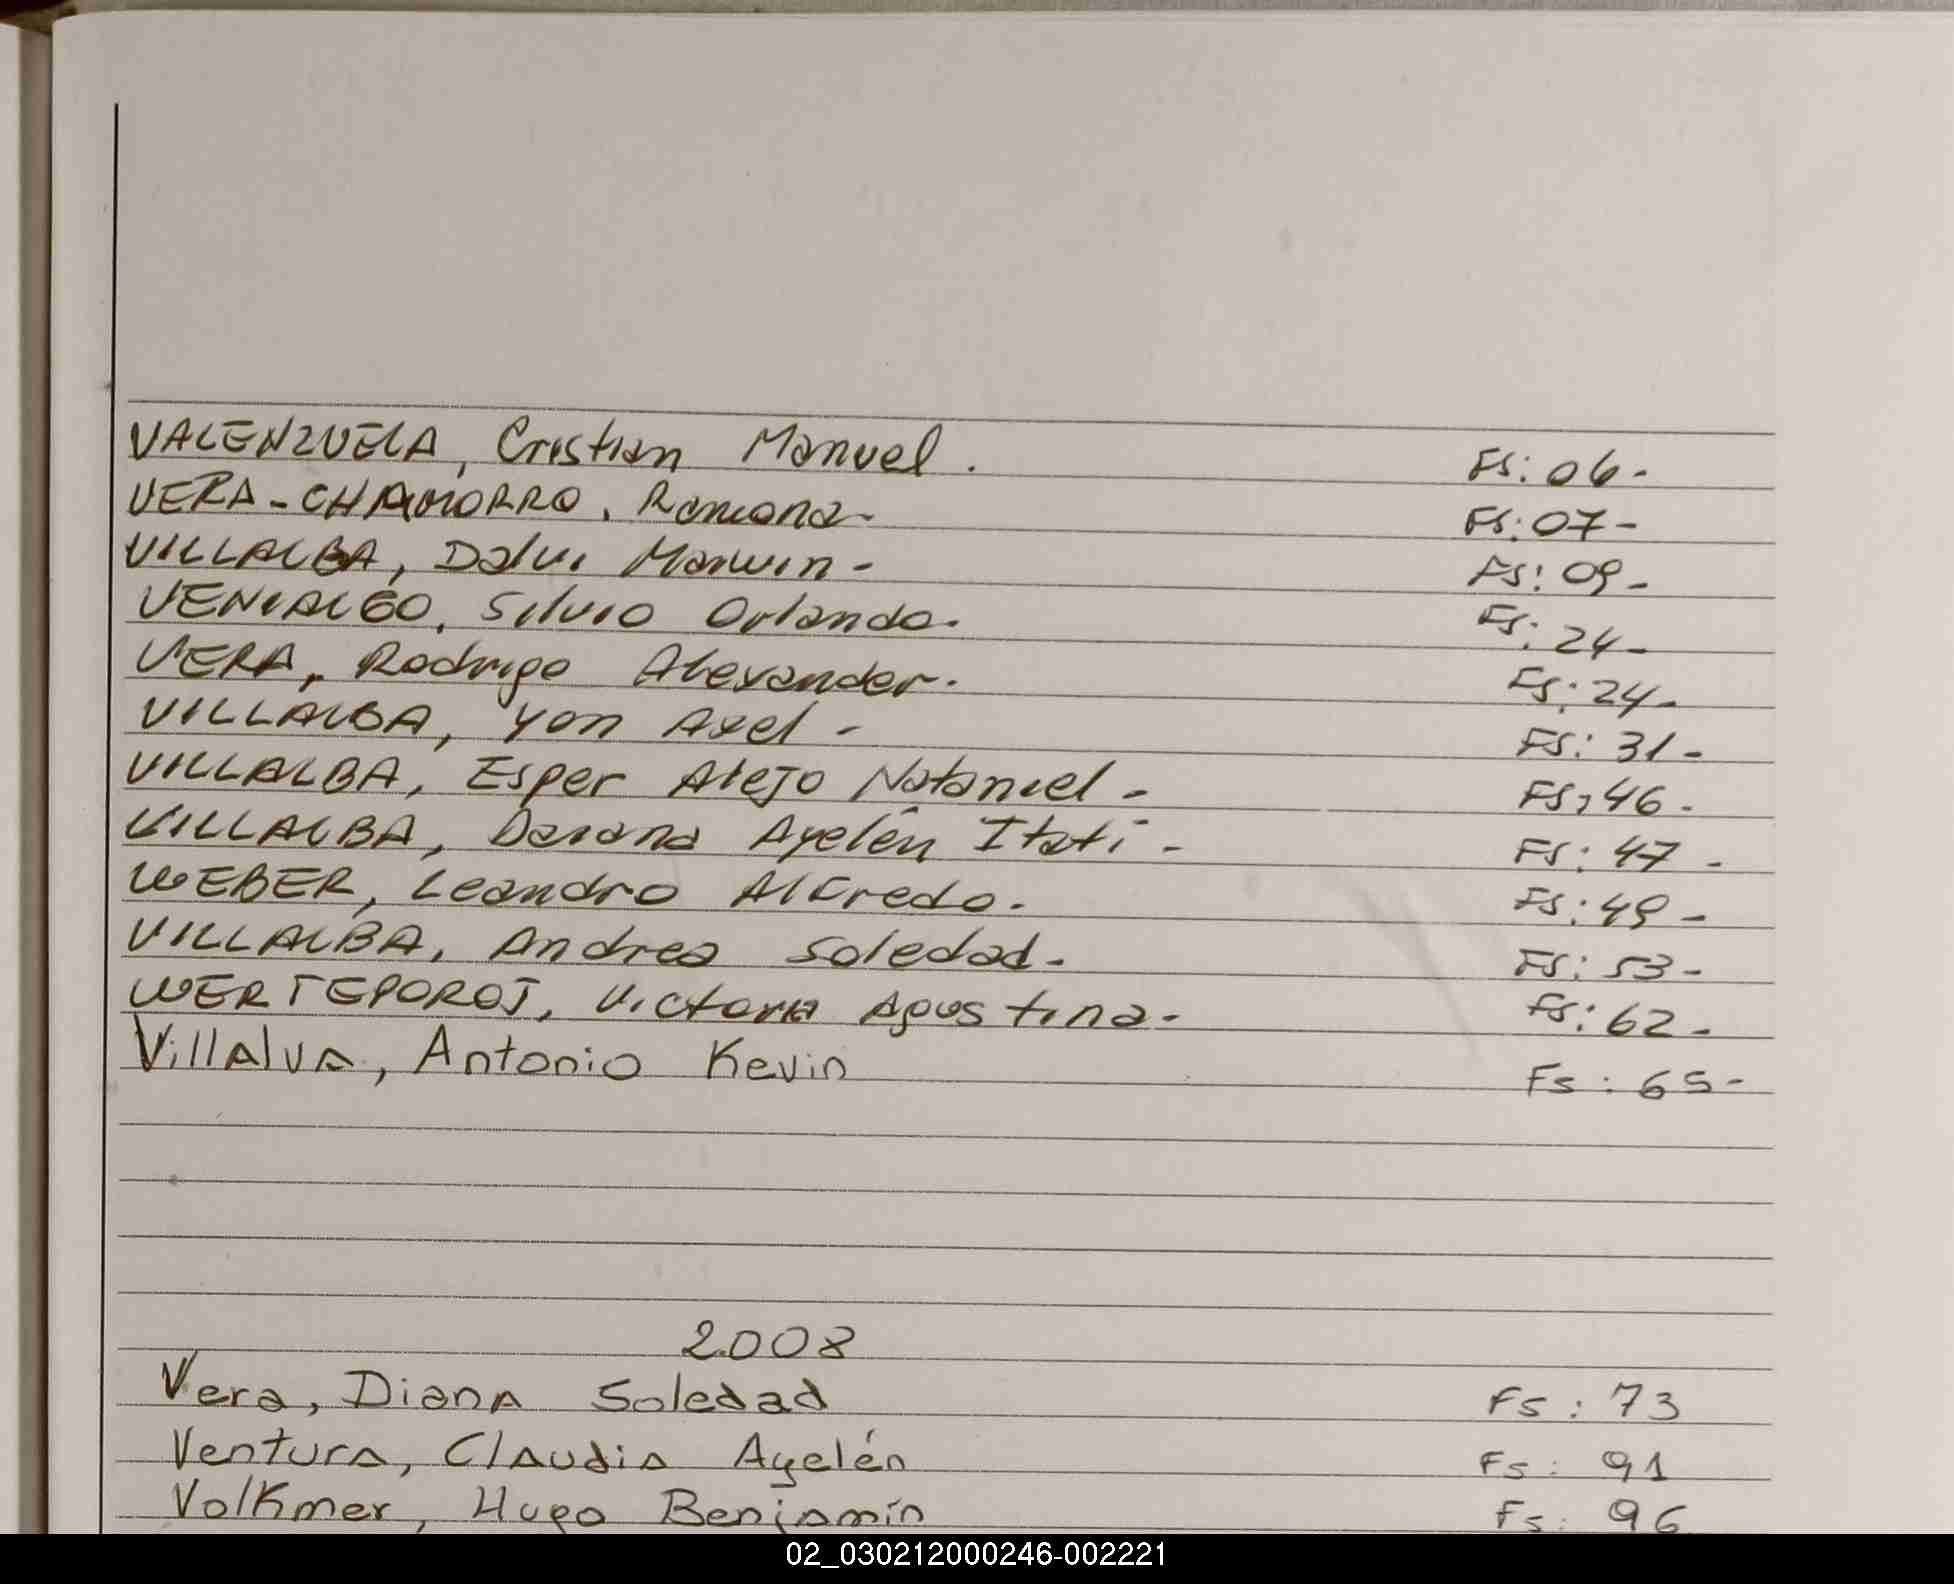 VALENZUELA, Cristian Manuel. Fs: 06-
VERA-CHAMORRO, Ramona- Fs: 07-
VILLALBA, Dalvi Marwin- Fs: 09-
VENIALGO, Silvio Orlando. Fs: 24-
VERA, Rodrigo Alexander. Fs: 24-
VILLALBA, Yon Axel- Fs: 31-
VILLALBA, Esper Alejo Nataniel- Fs: 46-
VILLALBA, Daiana Ayelén Itatí- Fs: 47-
WEBER, Leandro Alfredo. Fs: 49-
VILLALBA, Andrea Soledad- Fs: 53-
WERTEPOROJ, Victoria Agostina- Fs: 62-
Villalva, Antonio Kevin Fs: 65-
2008
Vera, Diana Soledad Fs: 73
Ventura, Claudia Ayelén Fs: 91
Volkmer, Hugo Benjamín Fs: 96
02_030212000246-002221